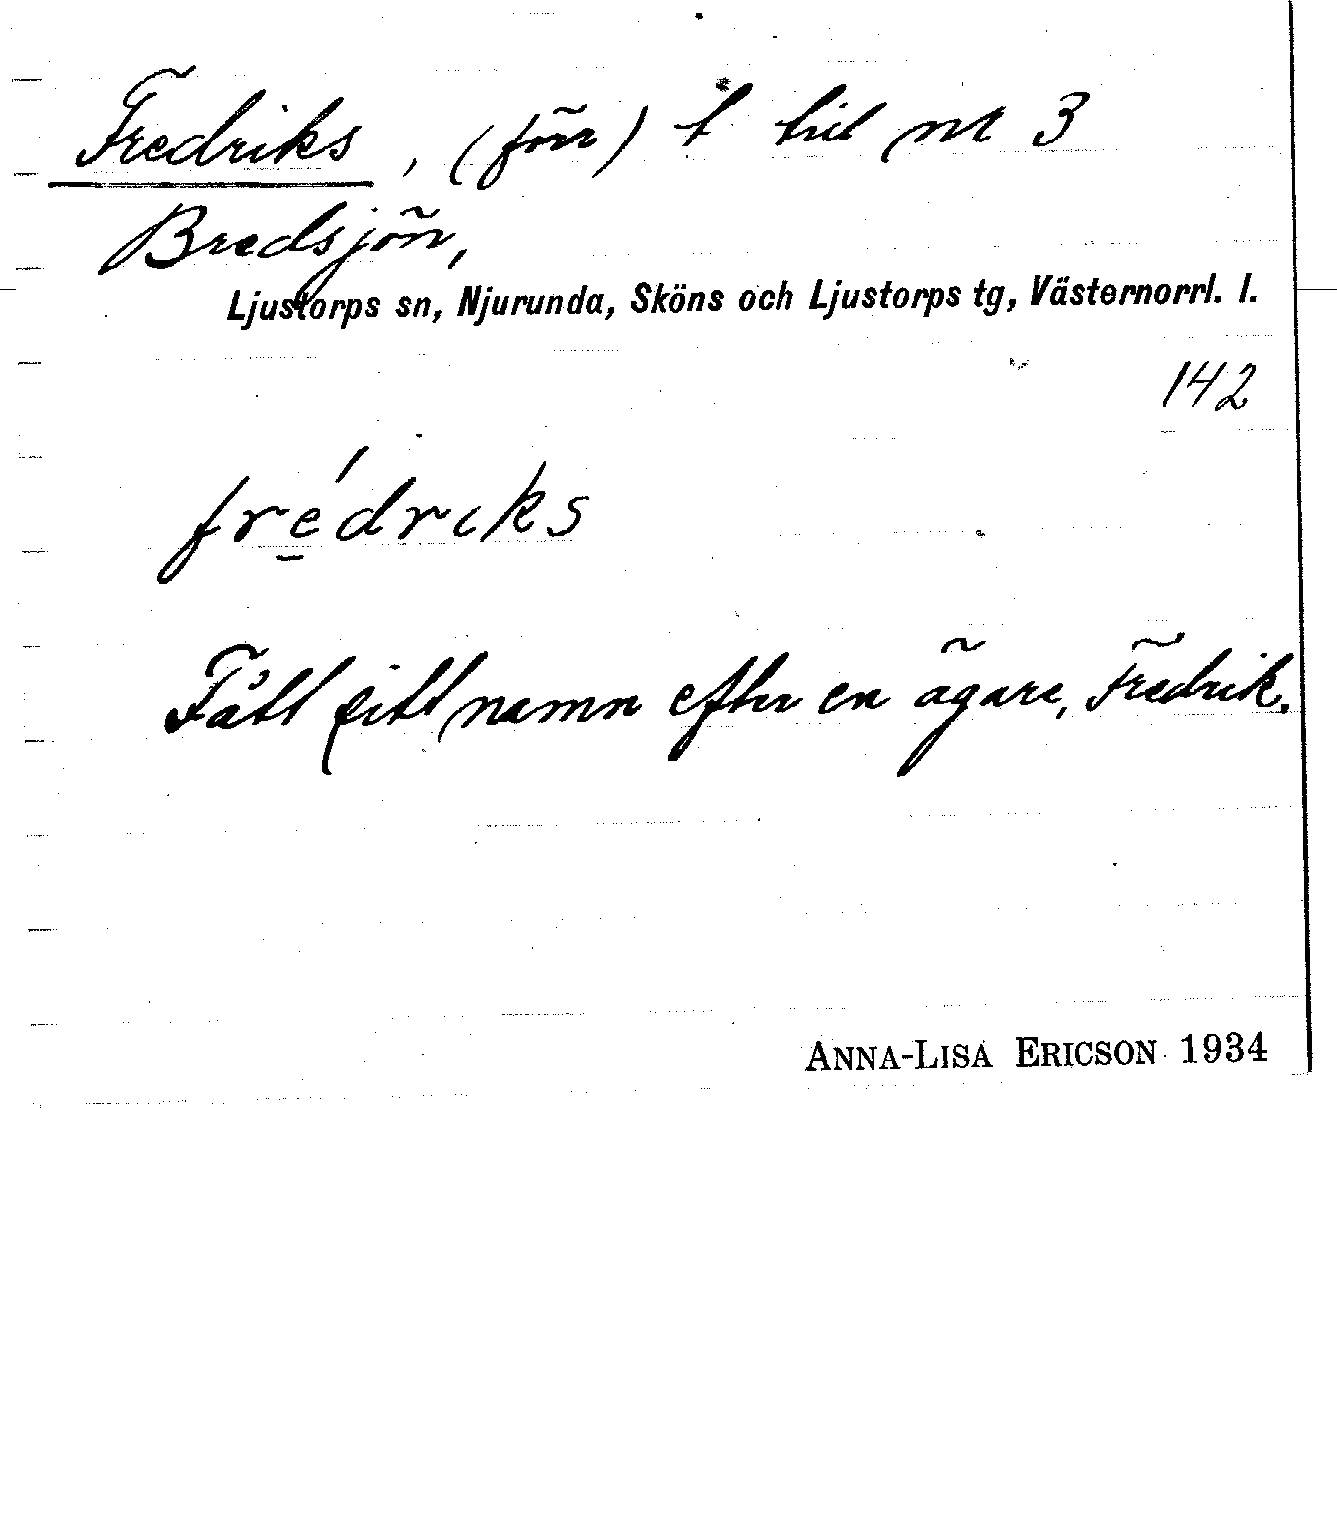 Fredriks, (förr) t till nr 3
Bredsjön,
Ljustorps sn, Njurunda, Sköns och Ljustorps tg, Västernorrl. l.
142
fré̲driks
Fått sitt namn efter en ägare, Fredrik.
ANNA-LISA ERICSON 1934